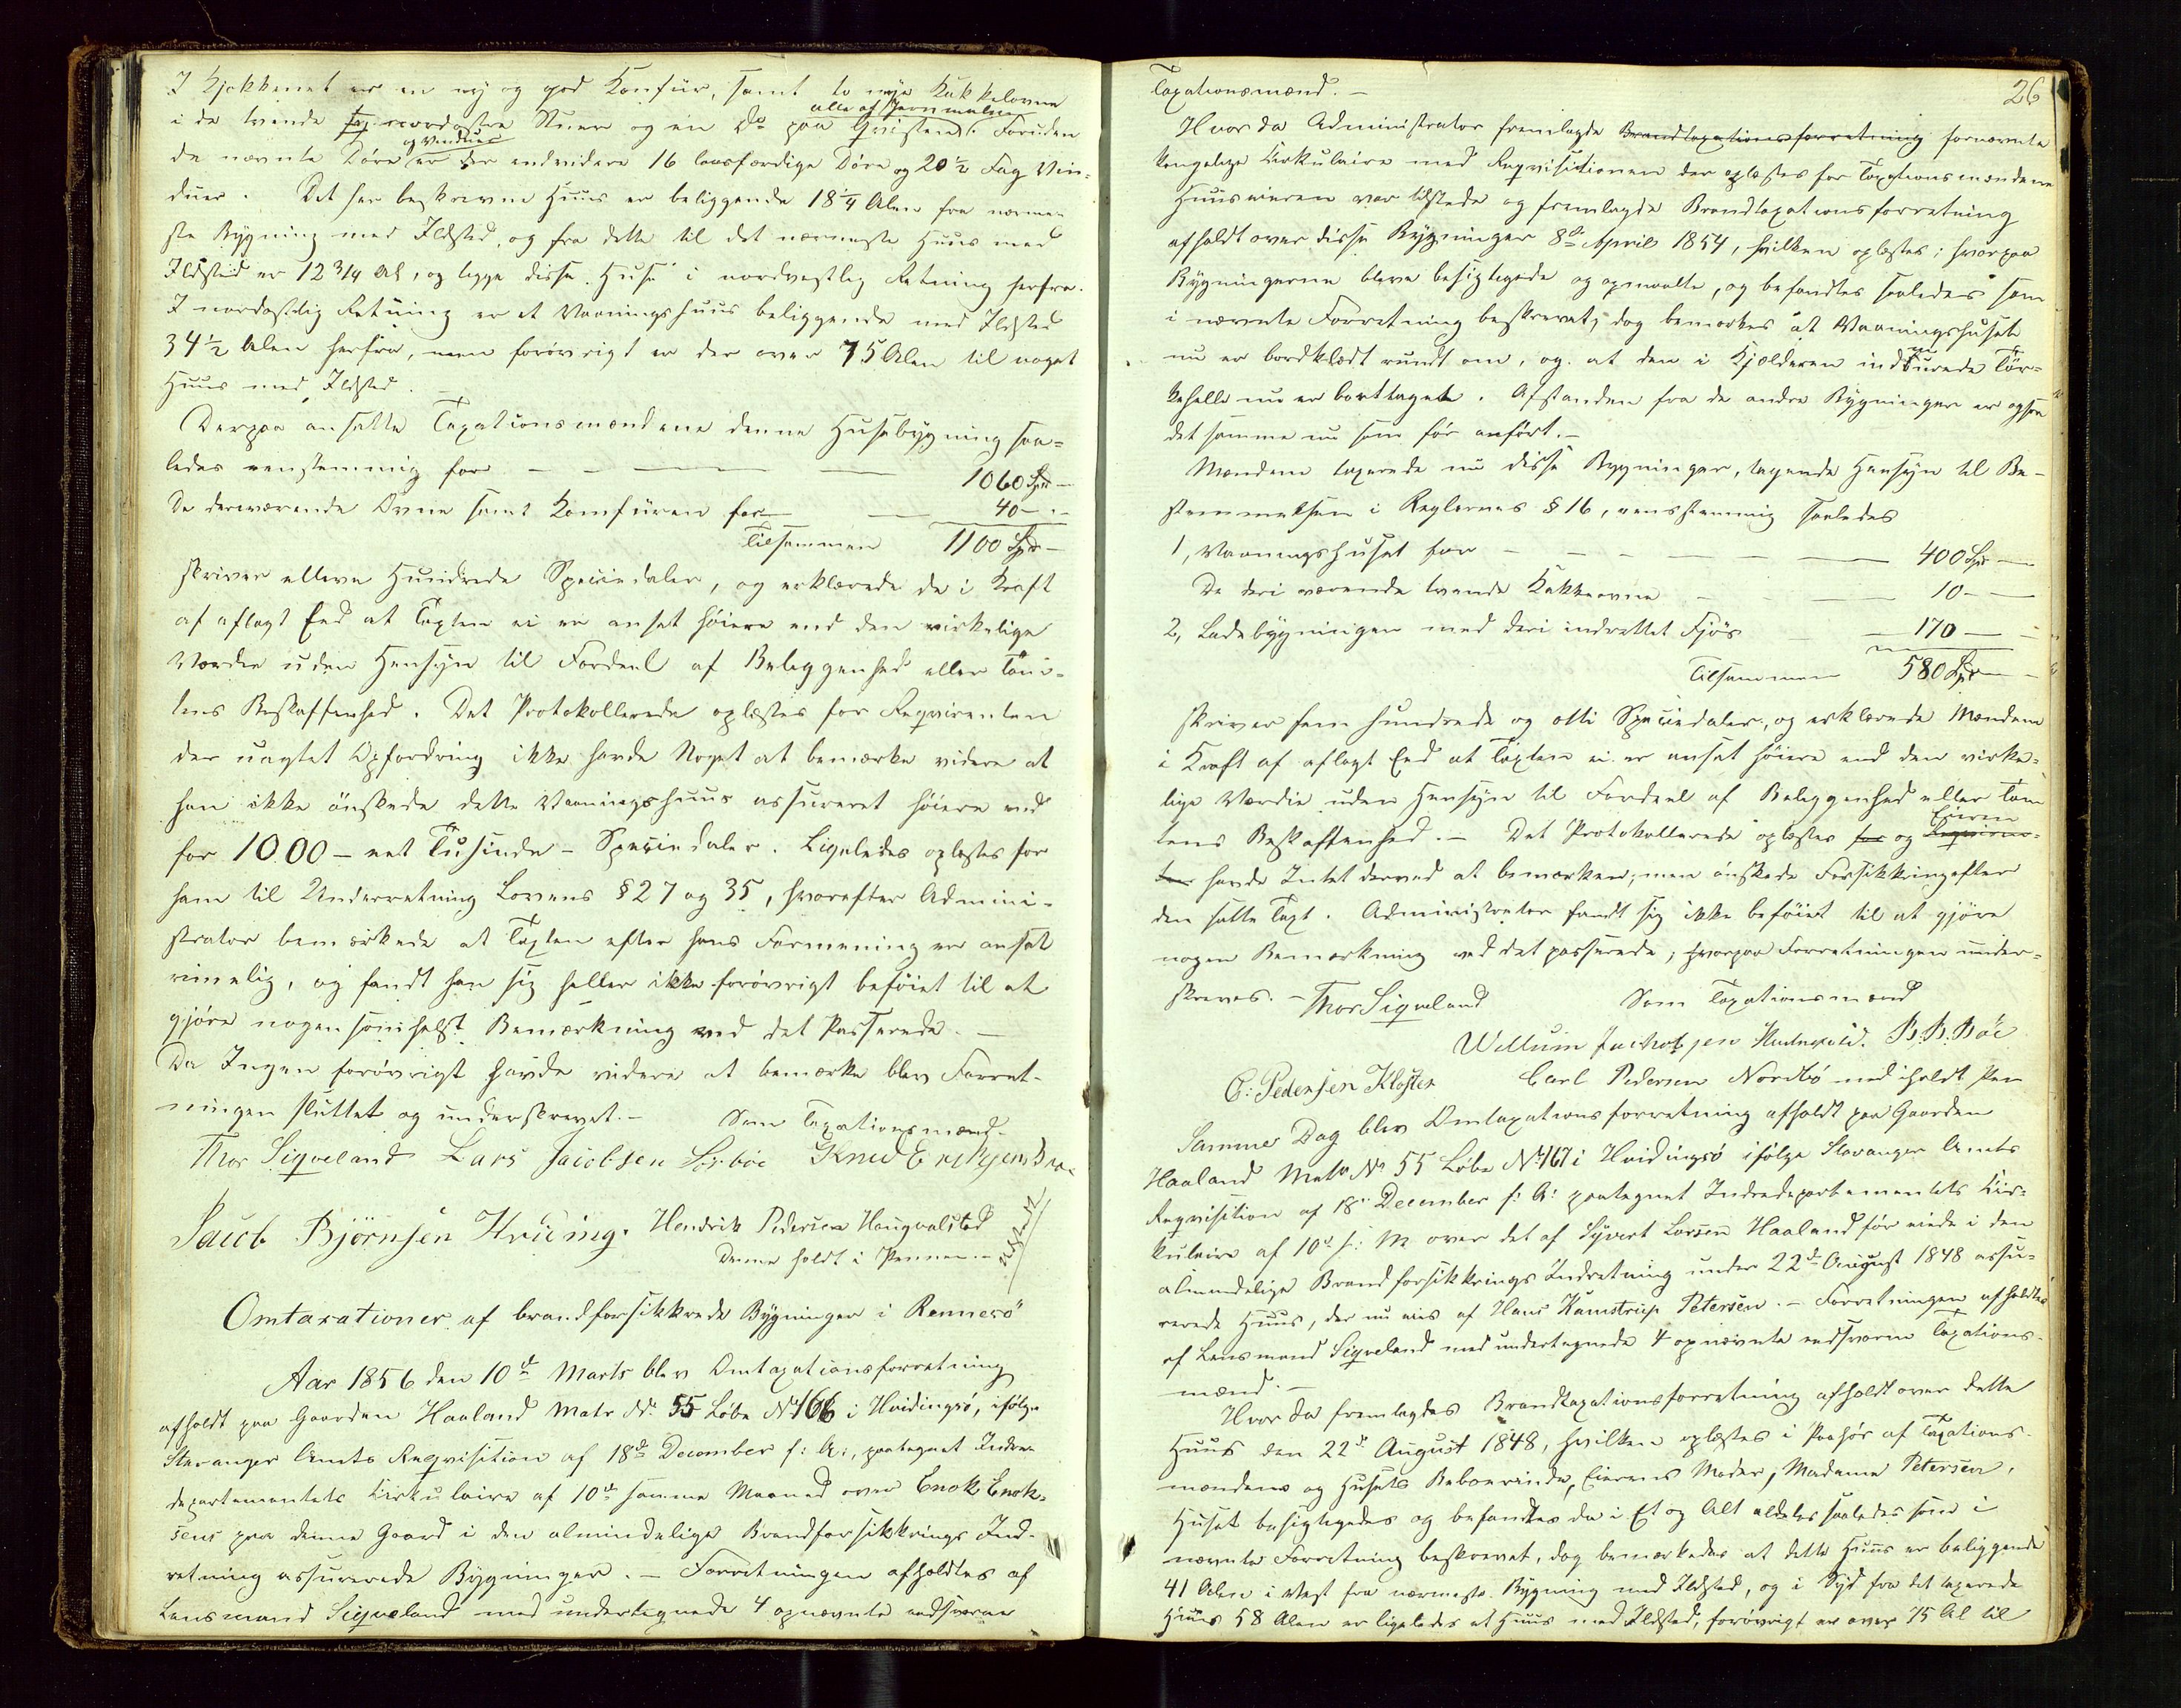 I Kjøkkenet er en ny og god Komfur, samt to nye Kakkelovne
i de tvende nordøstre Stuer og en Do paa Qvisten. Foruden
alle af Jernmalm
og Vinduer
de nævnte Döre er der endvidere 16 leusfærdige Döre og 20½ Fag Vin-
duer. Det her beskrevne Huus er beliggende 18¼ Alen fra nærme-
ste Bygning med Ildsted, og fra dette til det nærmeste Huus med
Ildsted er 12¾ Al, og ligge disse Huse i nordvestlig Retning herfra.
I nordøstlig Retning er et Vaaningshuus beliggende med Ildsted
34½ Alen herfra, men forövrigt er der over 75 Alen til noget
Huus med Ildsted.
Derpaa ansatte Taxationsmændene denne Husebygning saa-
ledes eenstemmig for — 1060 Spd —
De derværende Ovne samt Komfuren for — 40 —
Tilsammen 1100 Spd —
skriver elleve Hundrede Speciedaler, og erklærede de i Kraft
af aflagt Eed at Taxten ei er ansat höiere end den virkelige
Værdie uden Hensyn til Fordeel af Beliggenhed eller Tom-
tens Beskaffenhed. Det Protokollerede oplæstes for Reqvirenten
der uagtet Opfordring ikke havde Noget at bemærke videre at
han ikke önskede dette Vaaningshuus assureret höiere end
for 1000 – eet Tusinde – Speciedaler. Ligeledes oplæstes for
ham til Underretning Lovens § 27 og 35, hvorefter Admini-
strator bemærkede at Taxten efter hans Formening er ansat
rimelig, og fandt han sig heller ikke forövrigt beföiet til at
gjöre nogensomhelst Bemærkning ved det Passerede. —
Da Ingen forövrigt havde videre at bemærke blev Forret-
ningen sluttet og underskrevet. — Som Taxationsmænd.
Thor Siqveland Lars Jacobsen Sörböe Knud
Jacob Björnsen Hviding. Hendrik Pedersen Haugvalstad
Denne holdt i Pennen. —
Omtaxationer af brandforsikkrede Bygninger i Rennesö
Aar 1856 den 10d Marts blev Omtaxationsforretning
afholdt paa Gaarden Haaland Matr No 55 Löbe No 166 i Hvidingsö, ifölge
Stavanger Amts Reqvisition af 18d December f: A:, paategnet Indre-
departementets Cirkulaire af 10d samme Maaned over Enok Enok-
sens paa denne Gaard i den almindelige Brandforsikkrings Ind-
retning assurerede Bygninger. — Forretningen afholdtes af
Lensmand Siqveland med undertegnede 4 opnævnte eedsvorne
26
Taxationsmænd. —
Hvor da Administrator fremlagde Brandtaxationsforretning fornævnte
kongelige Cirkulaire med Reqvisitionen der oplæstes for Taxationsmændene
Huuseieren var tilstede og fremlagde Brandtaxationsforretning
afholdt over disse Bygninger 8d April 1854, hvilken oplæstes; hvorpaa
Bygningerne bleve besigtigede og opmaalte, og befandtes saaledes som
i nævnte Forretning beskrevet, dog bemærkes at Vaaningshuset
nu er bordklædt rundt om, og at den i Kjælderen indmurede Tör-
kehelle nu er borttaget. Afstanden fra de andre Bygninger er ogsaa
det samme nu som för anfört. —
Mændene taxerede nu disse Bygninger, tagende Hensyn til Be-
stemmelsen i Reglernes § 16, eenstemmig saaledes
1, Vaaningshuset for — 400 Spd —
De deri værende tvende Kakkelovne — 10 —
2, Ladebygningen med deri indrettet Fjös — 170 —
Tilsammen 580 Spd —
skriver fem hundrede og otti Speciedaler, og erklærede Mændene
i Kraft af aflagt Eed at Taxten ei er ansat höiere end den virke-
lige Værdie uden Hensyn til Fordeel af Beliggenhed eller Tom
tens Beskaffenhed. — Det Protokollerede oplæstes for og Reqviren-
Eieren
ten havde Intet derved at bemærke, men önskede Forsikkring efter
den satte Taxt. Administrator fandt sig ikke beföiet til at gjöre
nogen Bemærkning ved det passerede, hvorpaa Forretningen under-
skreves. — Thor Siqveland Som Taxationsmænd
Willum Jachobsen B. B. Böe
C: Pedersen Kloster Carl Pedersen Nordbö med iholdt Pen
Samme Dag blev Omtaxationsforretning afholdt paa Gaarden
Haaland Matr No 55 Löbe No 167 i Hvidingsö ifölge Stavanger Amts
Reqvisition af 18d December f: A: paategnet Indredepartementets Cir-
kulaire af 10d s: M over det af Syvert Larsen Haaland för eiede i den
almindelige Brandforsikkrings Indretning under 22d August 1848 assu-
rerede Huus, der nu eies af Hans Kamstrup Petersen. — Forretningen afholdtes
af Lensmand Siqveland med undertegnede 4 opnævnte eedsvorne Taxations-
mænd. —
Hvor da fremlagdes Brandtaxationsforretning afholdt over dette
Huus den 22d August 1848, hvilken oplæstes i Paahör af Taxations-
mændene og Husets Beboerinde, Eierens Moder, Madame Petersen.
Huset besigtigedes og befandtes da i Et og Alt aldeles saaledes som i
nævnte Forretning beskrevet, dog bemærkedes at dette Huus er beliggende
41 Alen i Vest fra nærmeste Bygning med Ildsted, og i Syd fra det taxerede
Huus 58 Alen er ligeledes et Huus med Ildsted, forövrigt er over 75 Al til